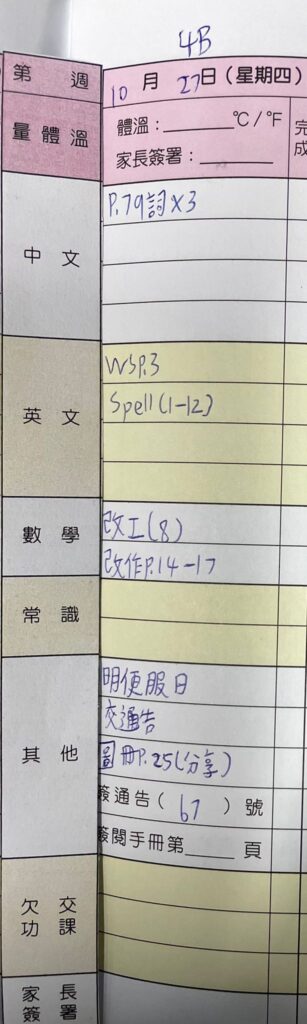 4B
第 週 10月27日(星期四)
量體溫 體溫：______°C/°F 完成
家長簽署：______
中文 P.79詞x3
英文 WSP.3
Spell(1-12)
數學 改工(8)
改作P.14-17
常識
其他 明便服日
交通告
圖冊P.25(分享)
簽通告(67)號
簽閱手冊第____頁
欠交功課
家長簽署